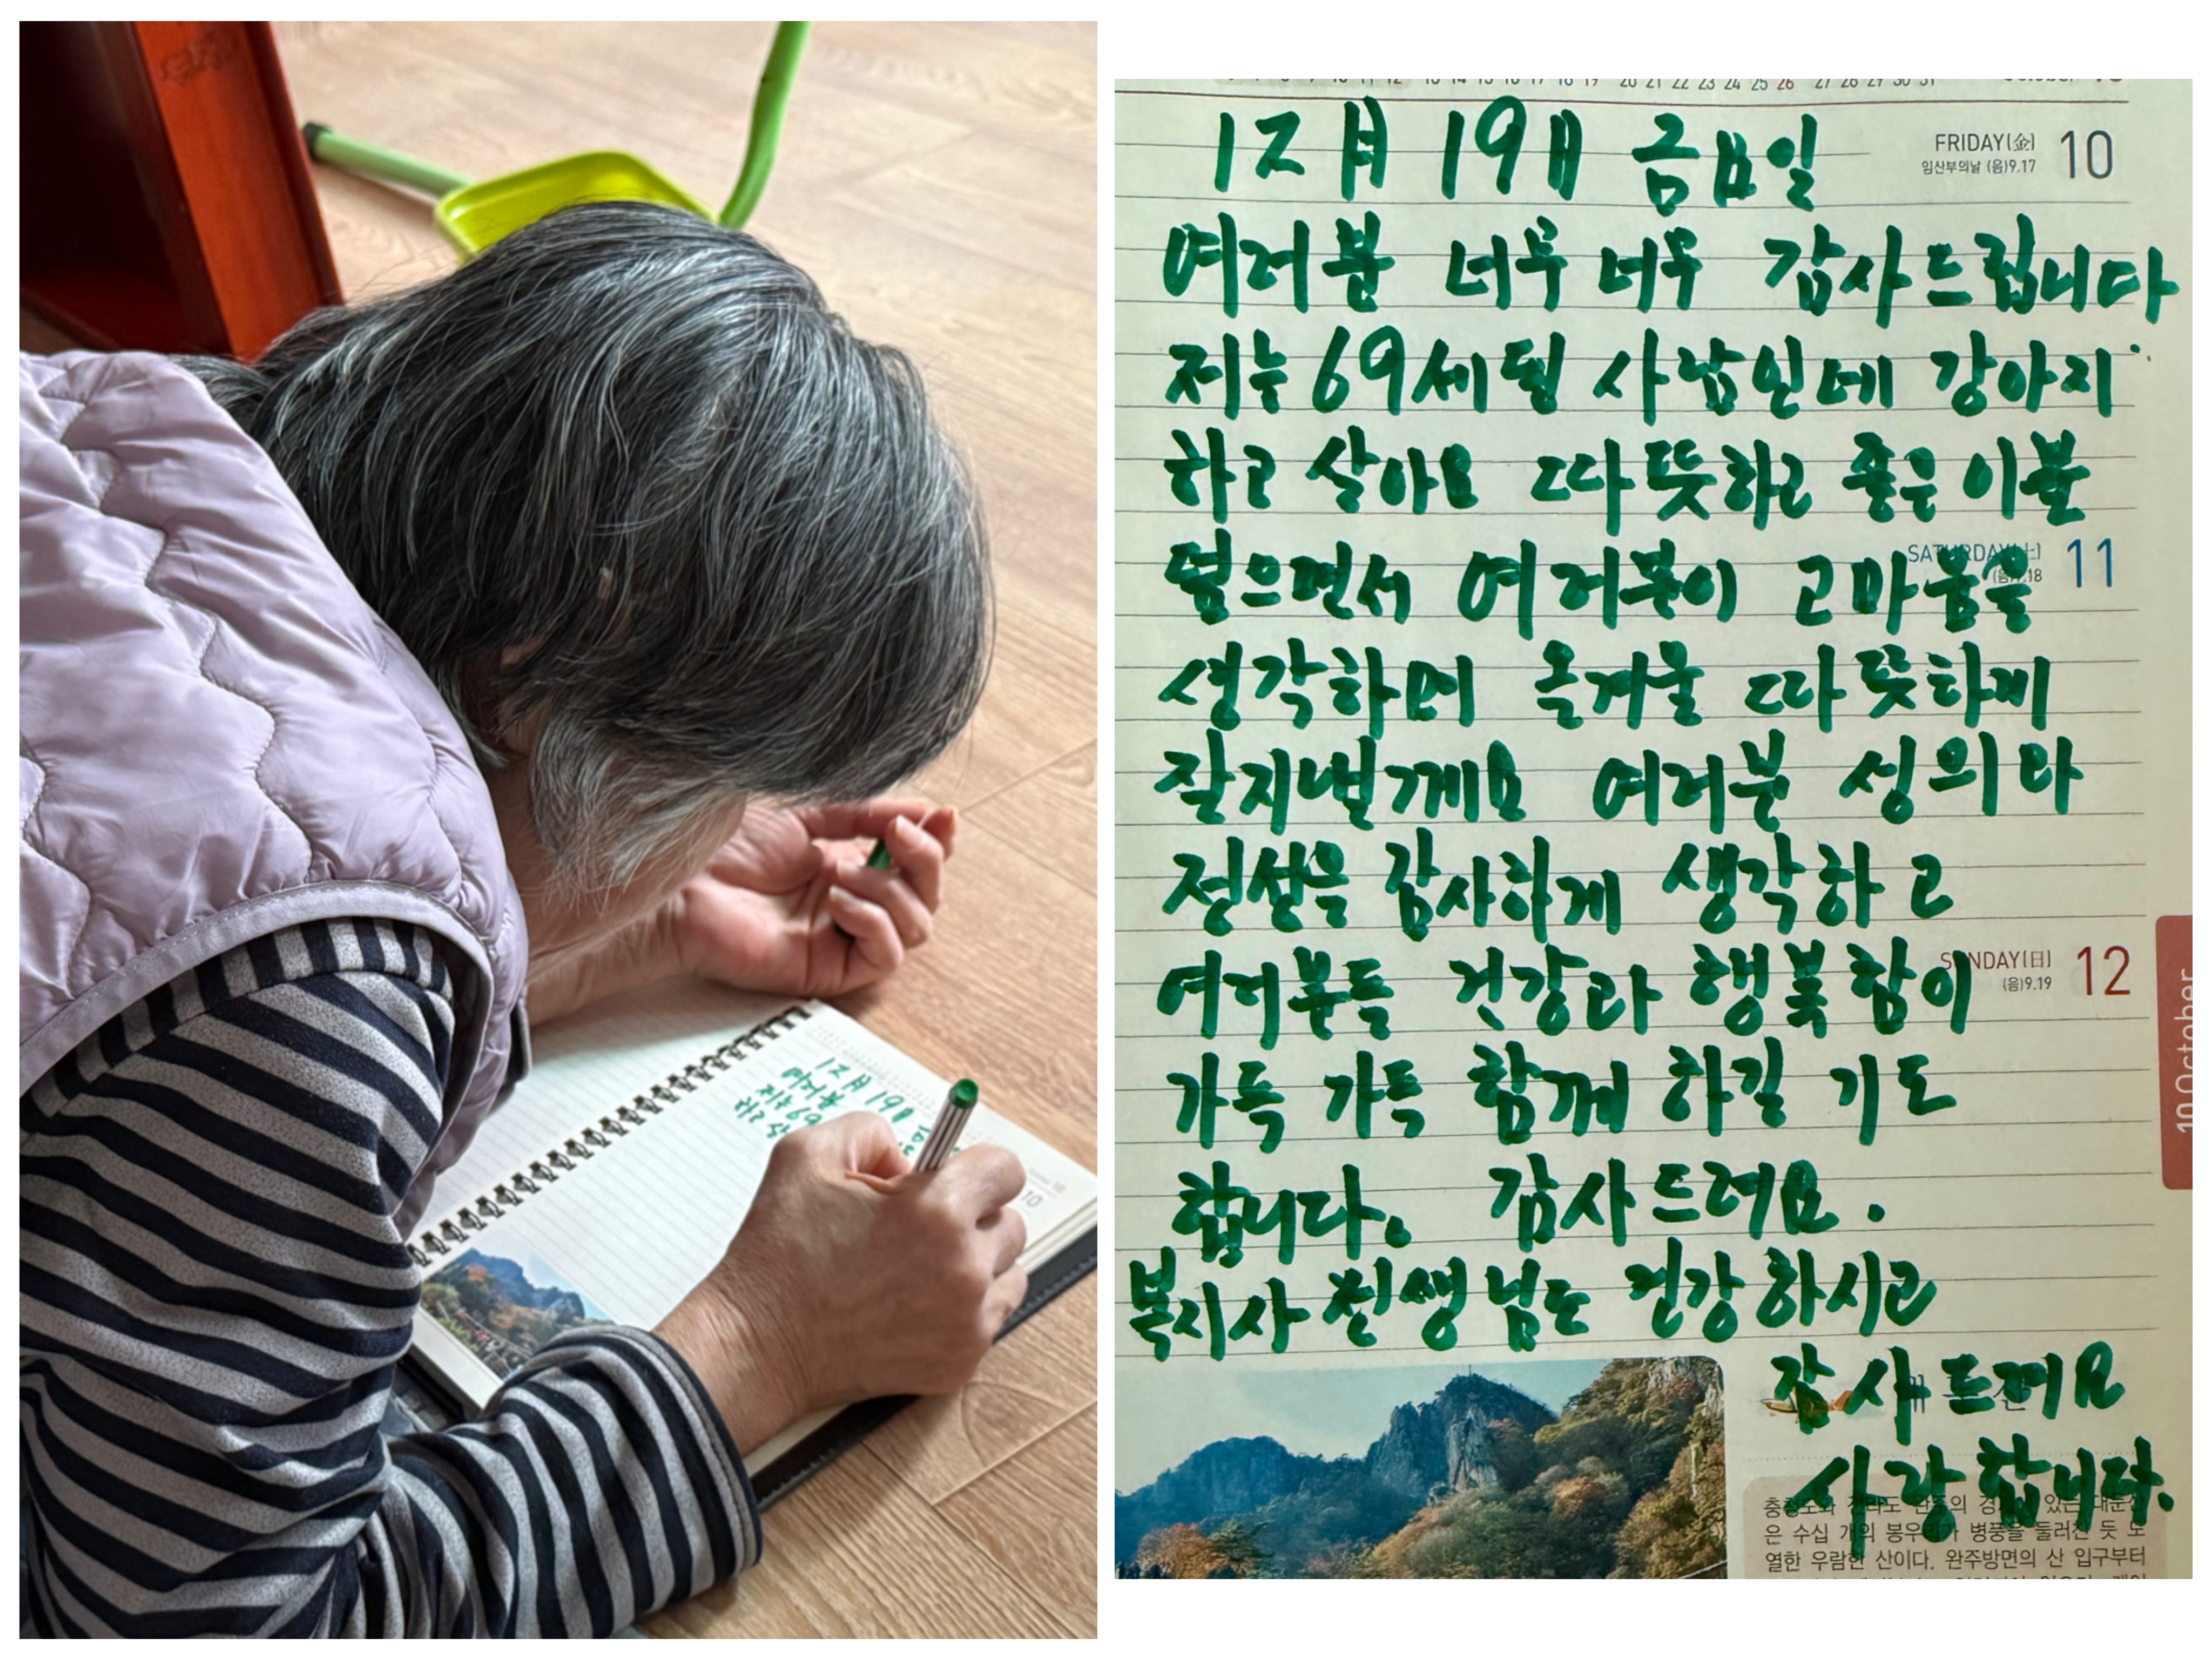 12月 19日 금요일
FRIDAY(金) 10
임산부의날 (음)9.17
여러분 너무 너무 감사드립니다
저는 69세된 사람인데 강아지
하고 살아요 따뜻하고 좋은 이불
덮으면서 여러분이 고마움을
SATURDAY(土) 11
생각하며 올겨울 따뜻하게
잘지낼께요 여러분 성의와
정성을 감사하게 생각하고
여러분들 건강과 행복함이
SUNDAY(日) 12
(음)9.19
가득 가득 함께 하길 기도
합니다. 감사드려요.
복지사 선생님도 건강하시고
감사드려요
사랑합니다.
은 수십 개의 봉우리가 병풍을 둘러친 듯 도
열한 우람한 산이다. 완주방면의 산 입구부터
10 October